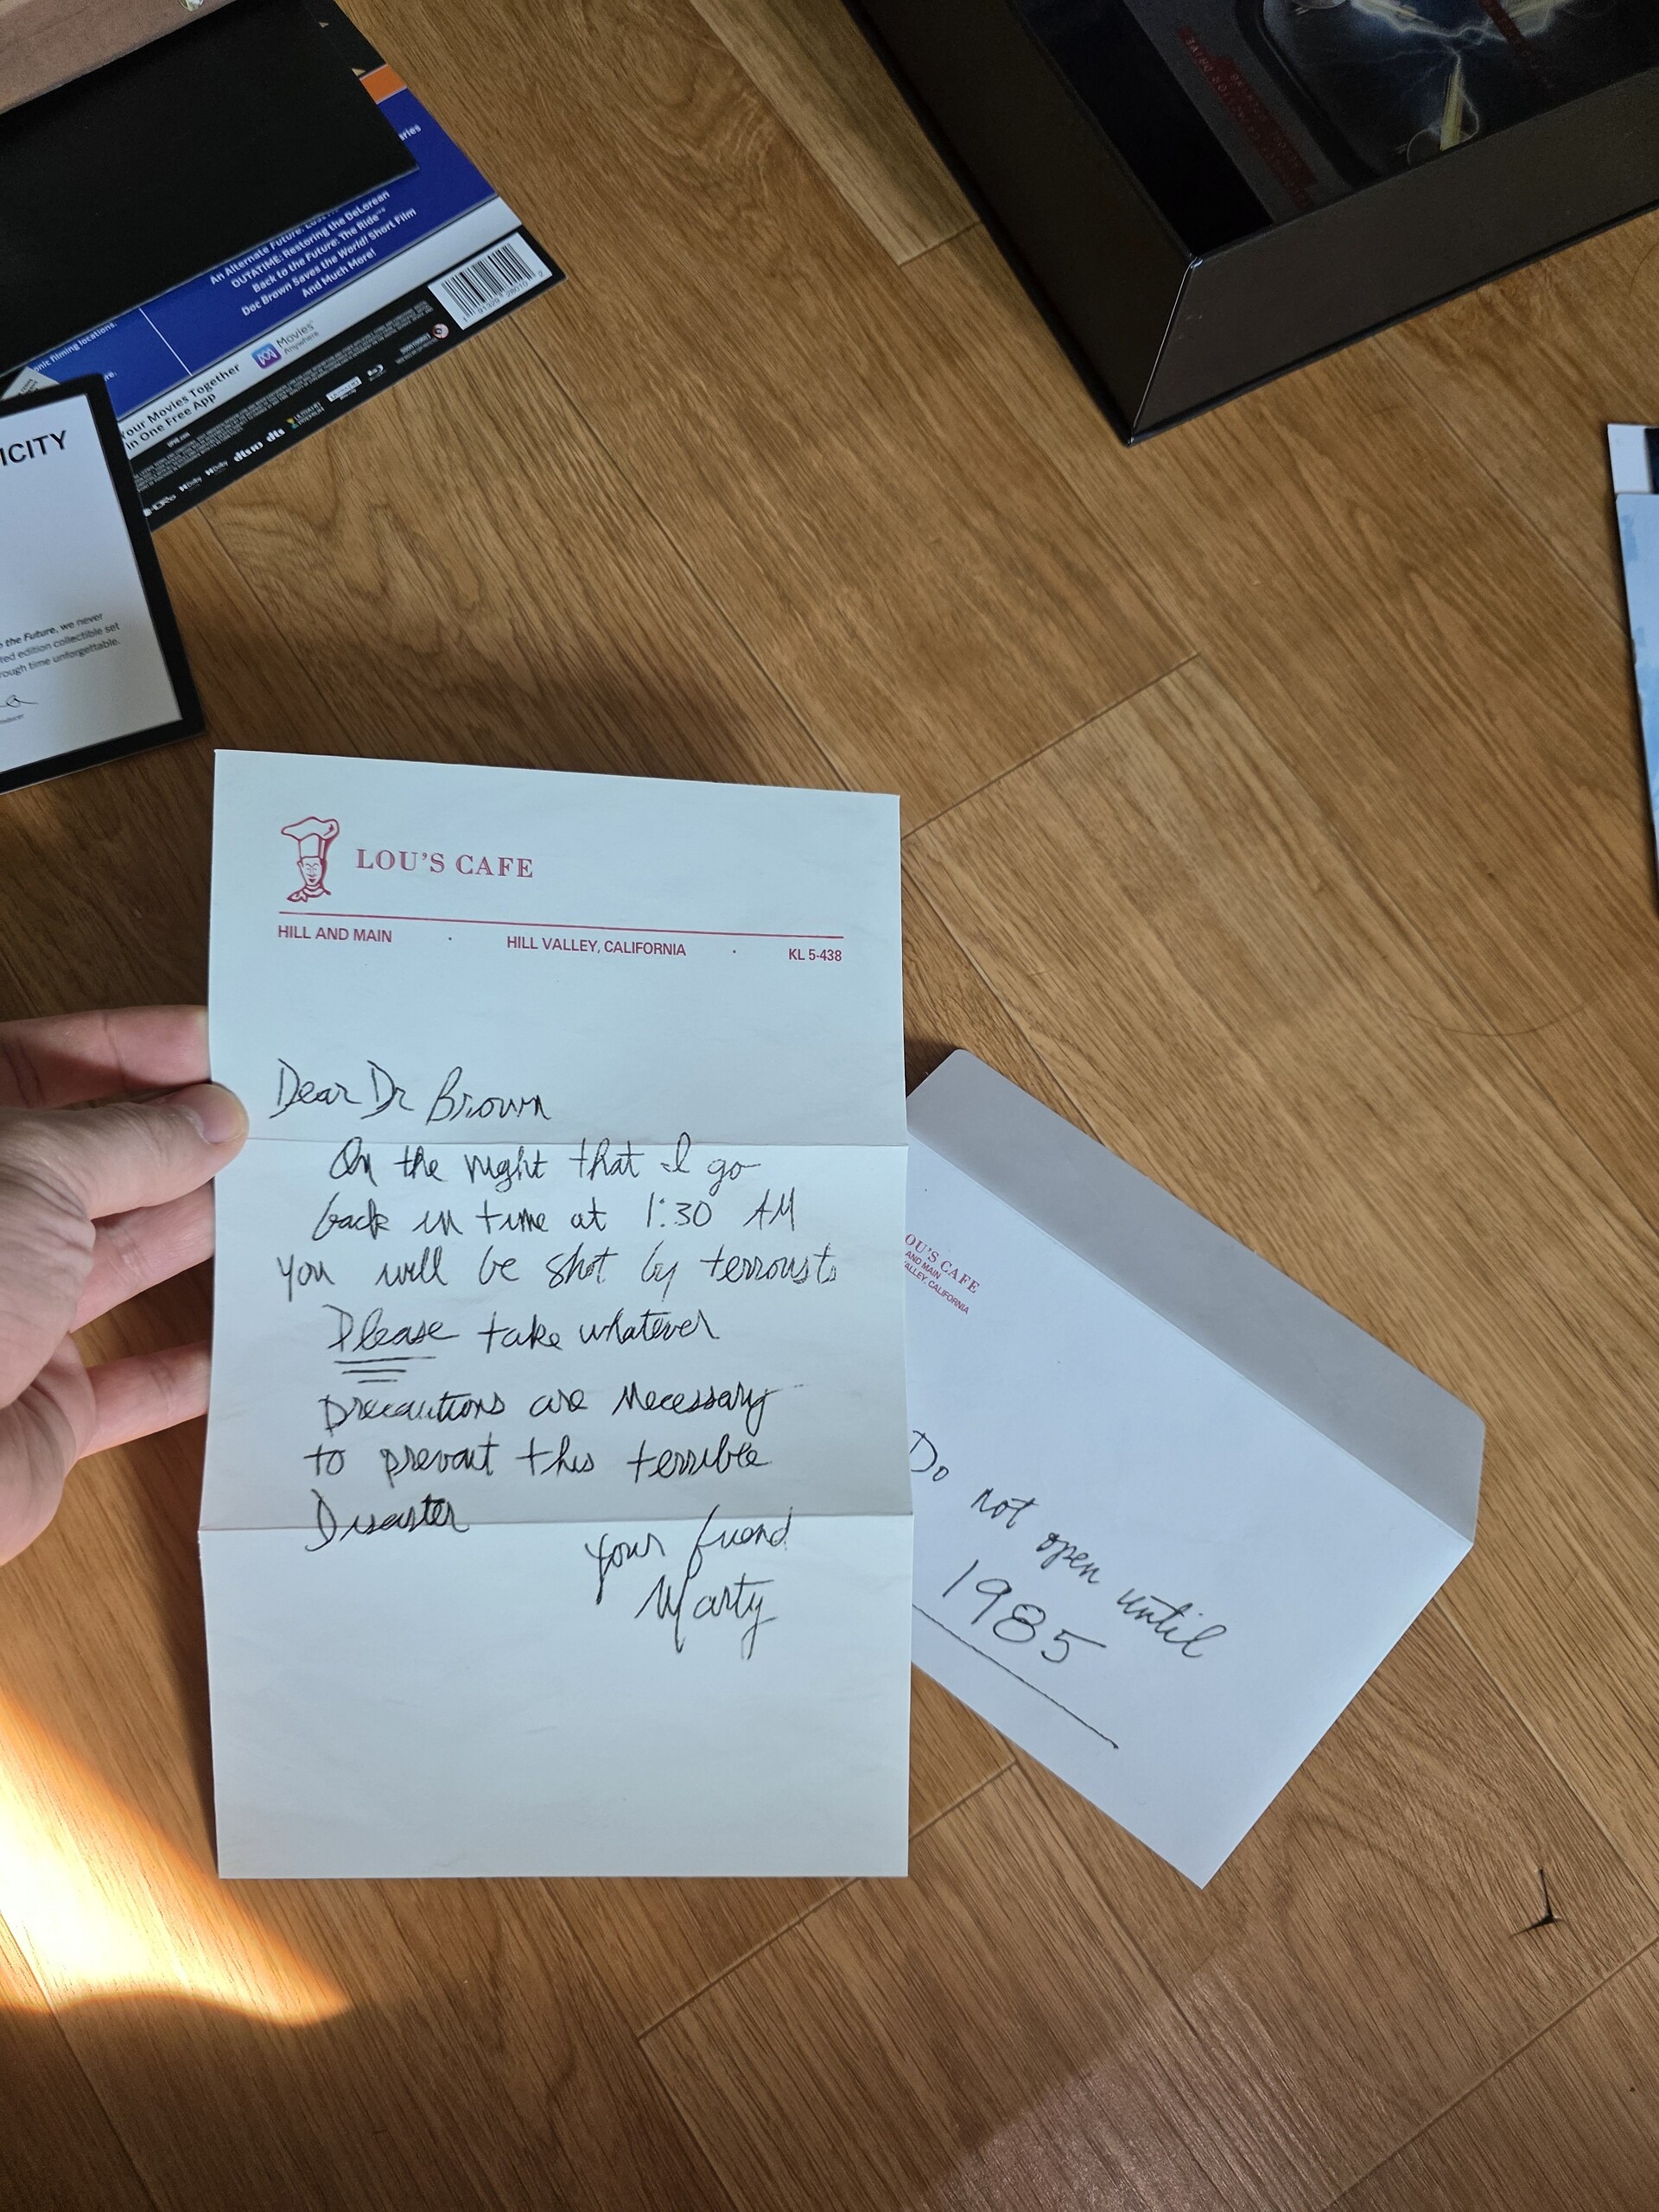 An Alternate Future:
OUTATIME: Restoring the DeLorean
Back to the Future: The Ride
Doc Brown Saves the World! Short Film
And Much More!
onic filming locations.
Movies
Anywhere
Your Movies Together
in One Free App
ICITY
the Future, we never
ted edition collectible set
rough time unforgettable.
LOU'S CAFE
HILL AND MAIN · HILL VALLEY, CALIFORNIA · KL 5-438
Dear Dr Brown
On the night that I go
back in time at 1:30 AM
you will be shot by terrorists
Please take whatever
precautions are necessary
to prevent this terrible
Disaster
Your friend
Marty
OU'S CAFE
AND MAIN
VALLEY, CALIFORNIA
Do not open until
1985